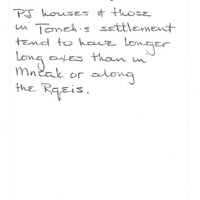 PJ houses & those
in Toneh's settlement
tend to have longer
long axes than in
Mncak or along
the Rqeis.